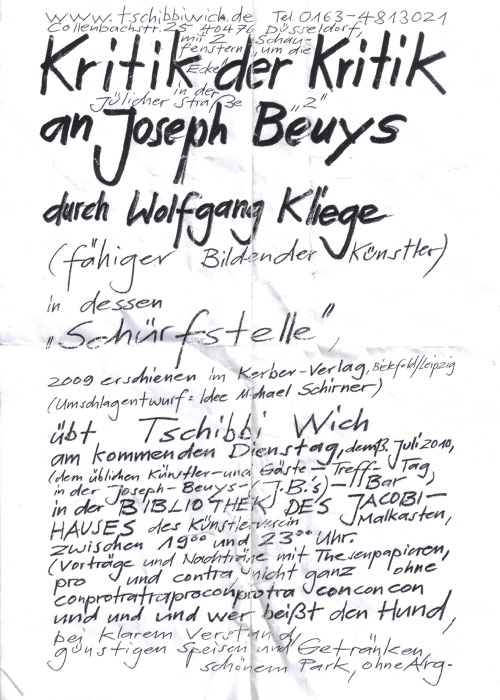 www.tschibbiwich.de Tel. 0163-4813021
Collenbachstr. 25 40476 Düsseldorf,
mit 2 Schau-
fenstern um die
Ecke
in der
Jülicher Straße „2"
Kritik der Kritik
an Joseph Beuys
durch Wolfgang Kliege
(fähiger Bildender Künstler)
in dessen
„Schürfstelle",
2009 erschienen im Kerber-Verlag, Bielefeld/Leipzig
(Umschlagentwurf = Idee Michael Schirner)
übt Tschibbi Wich
am kommenden Dienstag, dem 13. Juli 2010,
(dem üblichen Künstler- und Gäste-Treff-Tag,
in der Joseph-Beuys- (J.B.'s)-Bar,
in der BIBLIOTHEK DES JACOBI-
HAUSES des Künstlerverein Malkasten,
zwischen 19°° und 23°° Uhr.
(Vorträge und Nachträge mit Thesenpapieren,
pro und contra, nicht ganz ohne
conprotratraproconprotra conconcon
und und und wer beißt den Hund,
bei klarem Verstand,
günstigen Speisen und Getränken,
schönem Park, ohne Arg-